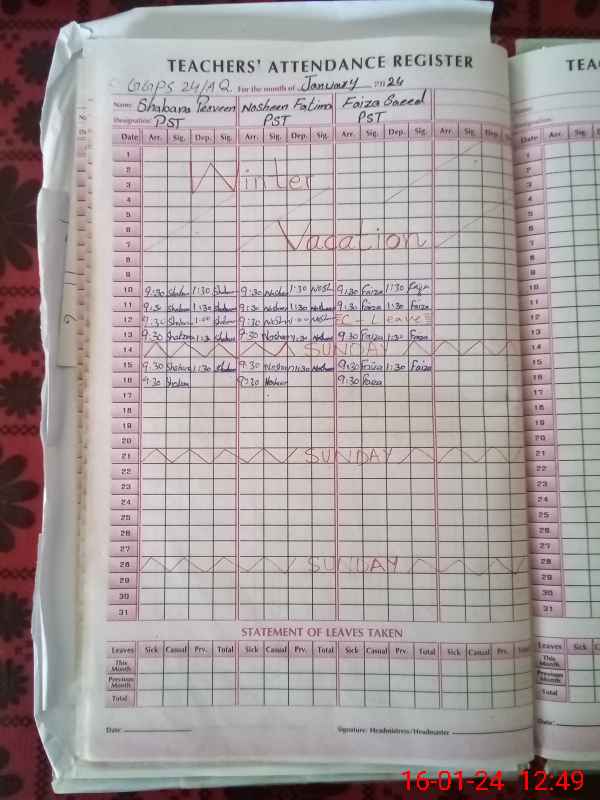 TEACHERS' ATTENDANCE REGISTER
GGPS 24/4Q For the month of January 2024
Name: Shabana Perveen Nasheen Fatima Faiza Saeed
Designation: PST PST PST
Date Arr. Sig. Dep. Sig. Arr. Sig. Dep. Sig. Arr. Sig. Dep. Sig. Arr. Sig. Dep. Sig.
1
2
3 Winter
4
5
6
7 Vacation
8
9
10 9:30 1:30 9:30 1:30 9:30 Faiza 1:30 Faiza
11 9:30 1:30 9:30 1:30 9:30 Faiza 1:30 Faiza
12 9:30 1:00 9:30 1:00 C - Leave
13 9:30 1:30 9:30 1:30 9:30 Faiza 1:30 Faiza
14 SUNDAY
15 9:30 1:30 9:30 1:30 9:30 Faiza 1:30 Faiza
16 9:30 9:30 9:30 Faiza
17
18
19
20
21 SUNDAY
22
23
24
25
26
27
28 SUNDAY
29
30
31
STATEMENT OF LEAVES TAKEN
Leaves Sick Casual Prv. Total Sick Casual Prv. Total Sick Casual Prv. Total Sick Casual Prv. Total
This Month
Previous Month
Total
Date: Signature: Headmistress/Headmaster
TEA
Date Arr. Sig.
1
2
3
4
5
6
7
8
9
10
11
12
13
14
15
16
17
18
19
20
21
22
23
24
25
26
27
28
29
30
31
Leaves Sick
This Month
Previous Month
Total
Date:
16-01-24 12:49